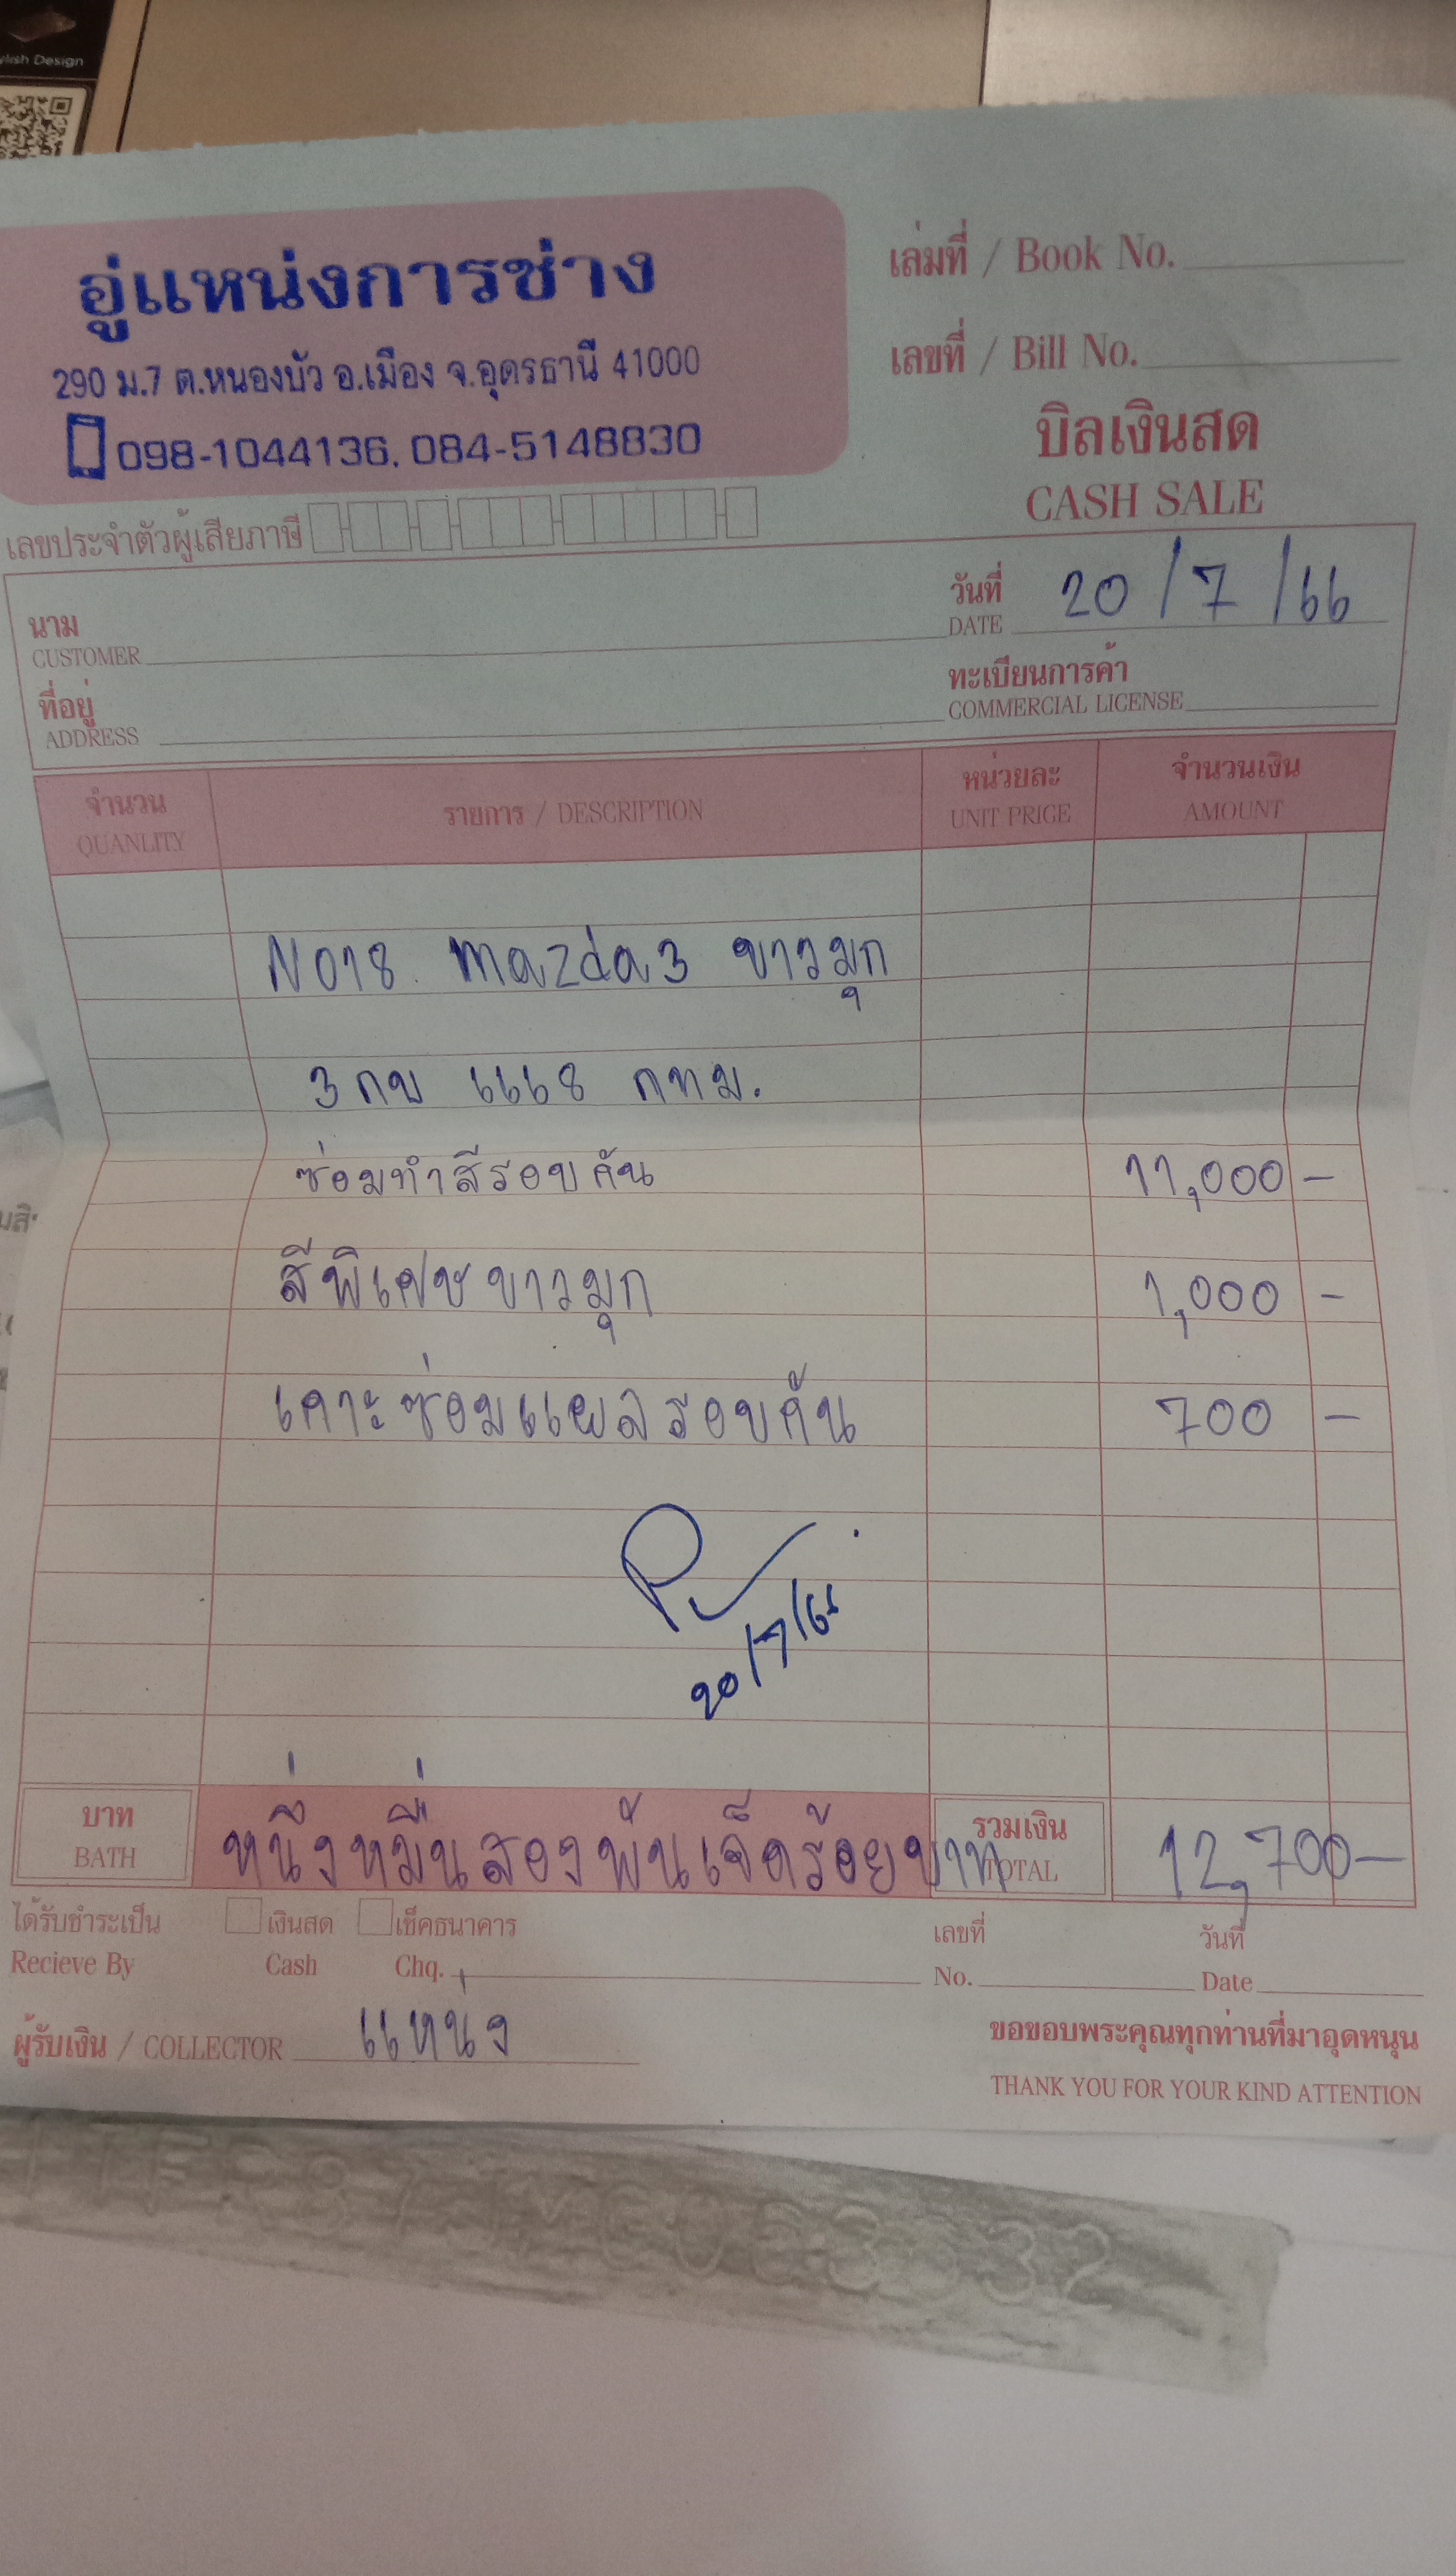 ylish Design
อู่แหน่งการช่าง
290 ม.7 ต.หนองบัว อ.เมือง จ.อุดรธานี 41000
098-1044136, 084-5148830
เลขประจำตัวผู้เสียภาษี
เล่มที่ / Book No.
เลขที่ / Bill No.
บิลเงินสด
CASH SALE
นาม
CUSTOMER
วันที่ 20/7/66
DATE
ที่อยู่
ADDRESS
ทะเบียนการค้า
COMMERCIAL LICENSE
จำนวน รายการ / DESCRIPTION หน่วยละ จำนวนเงิน
QUANLITY UNIT PRICE AMOUNT
N018 mazda3 ขาวมุก
3กบ 6668 กทม.
ซ่อมทำสีรอบคัน 11,000 -
สีพิเศษขาวมุก 1,000 -
เคาะซ่อมแผลรอบคัน 700 -
20/7/66
บาท หนึ่งหมื่นสองพันเจ็ดร้อยบาท รวมเงิน 12,700-
BATH TOTAL
ได้รับชำระเป็น เงินสด เช็คธนาคาร เลขที่ วันที่
Recieve By Cash Chq. No. Date
ผู้รับเงิน / COLLECTOR แหน่ง
ขอขอบพระคุณทุกท่านที่มาอุดหนุน
THANK YOU FOR YOUR KIND ATTENTION